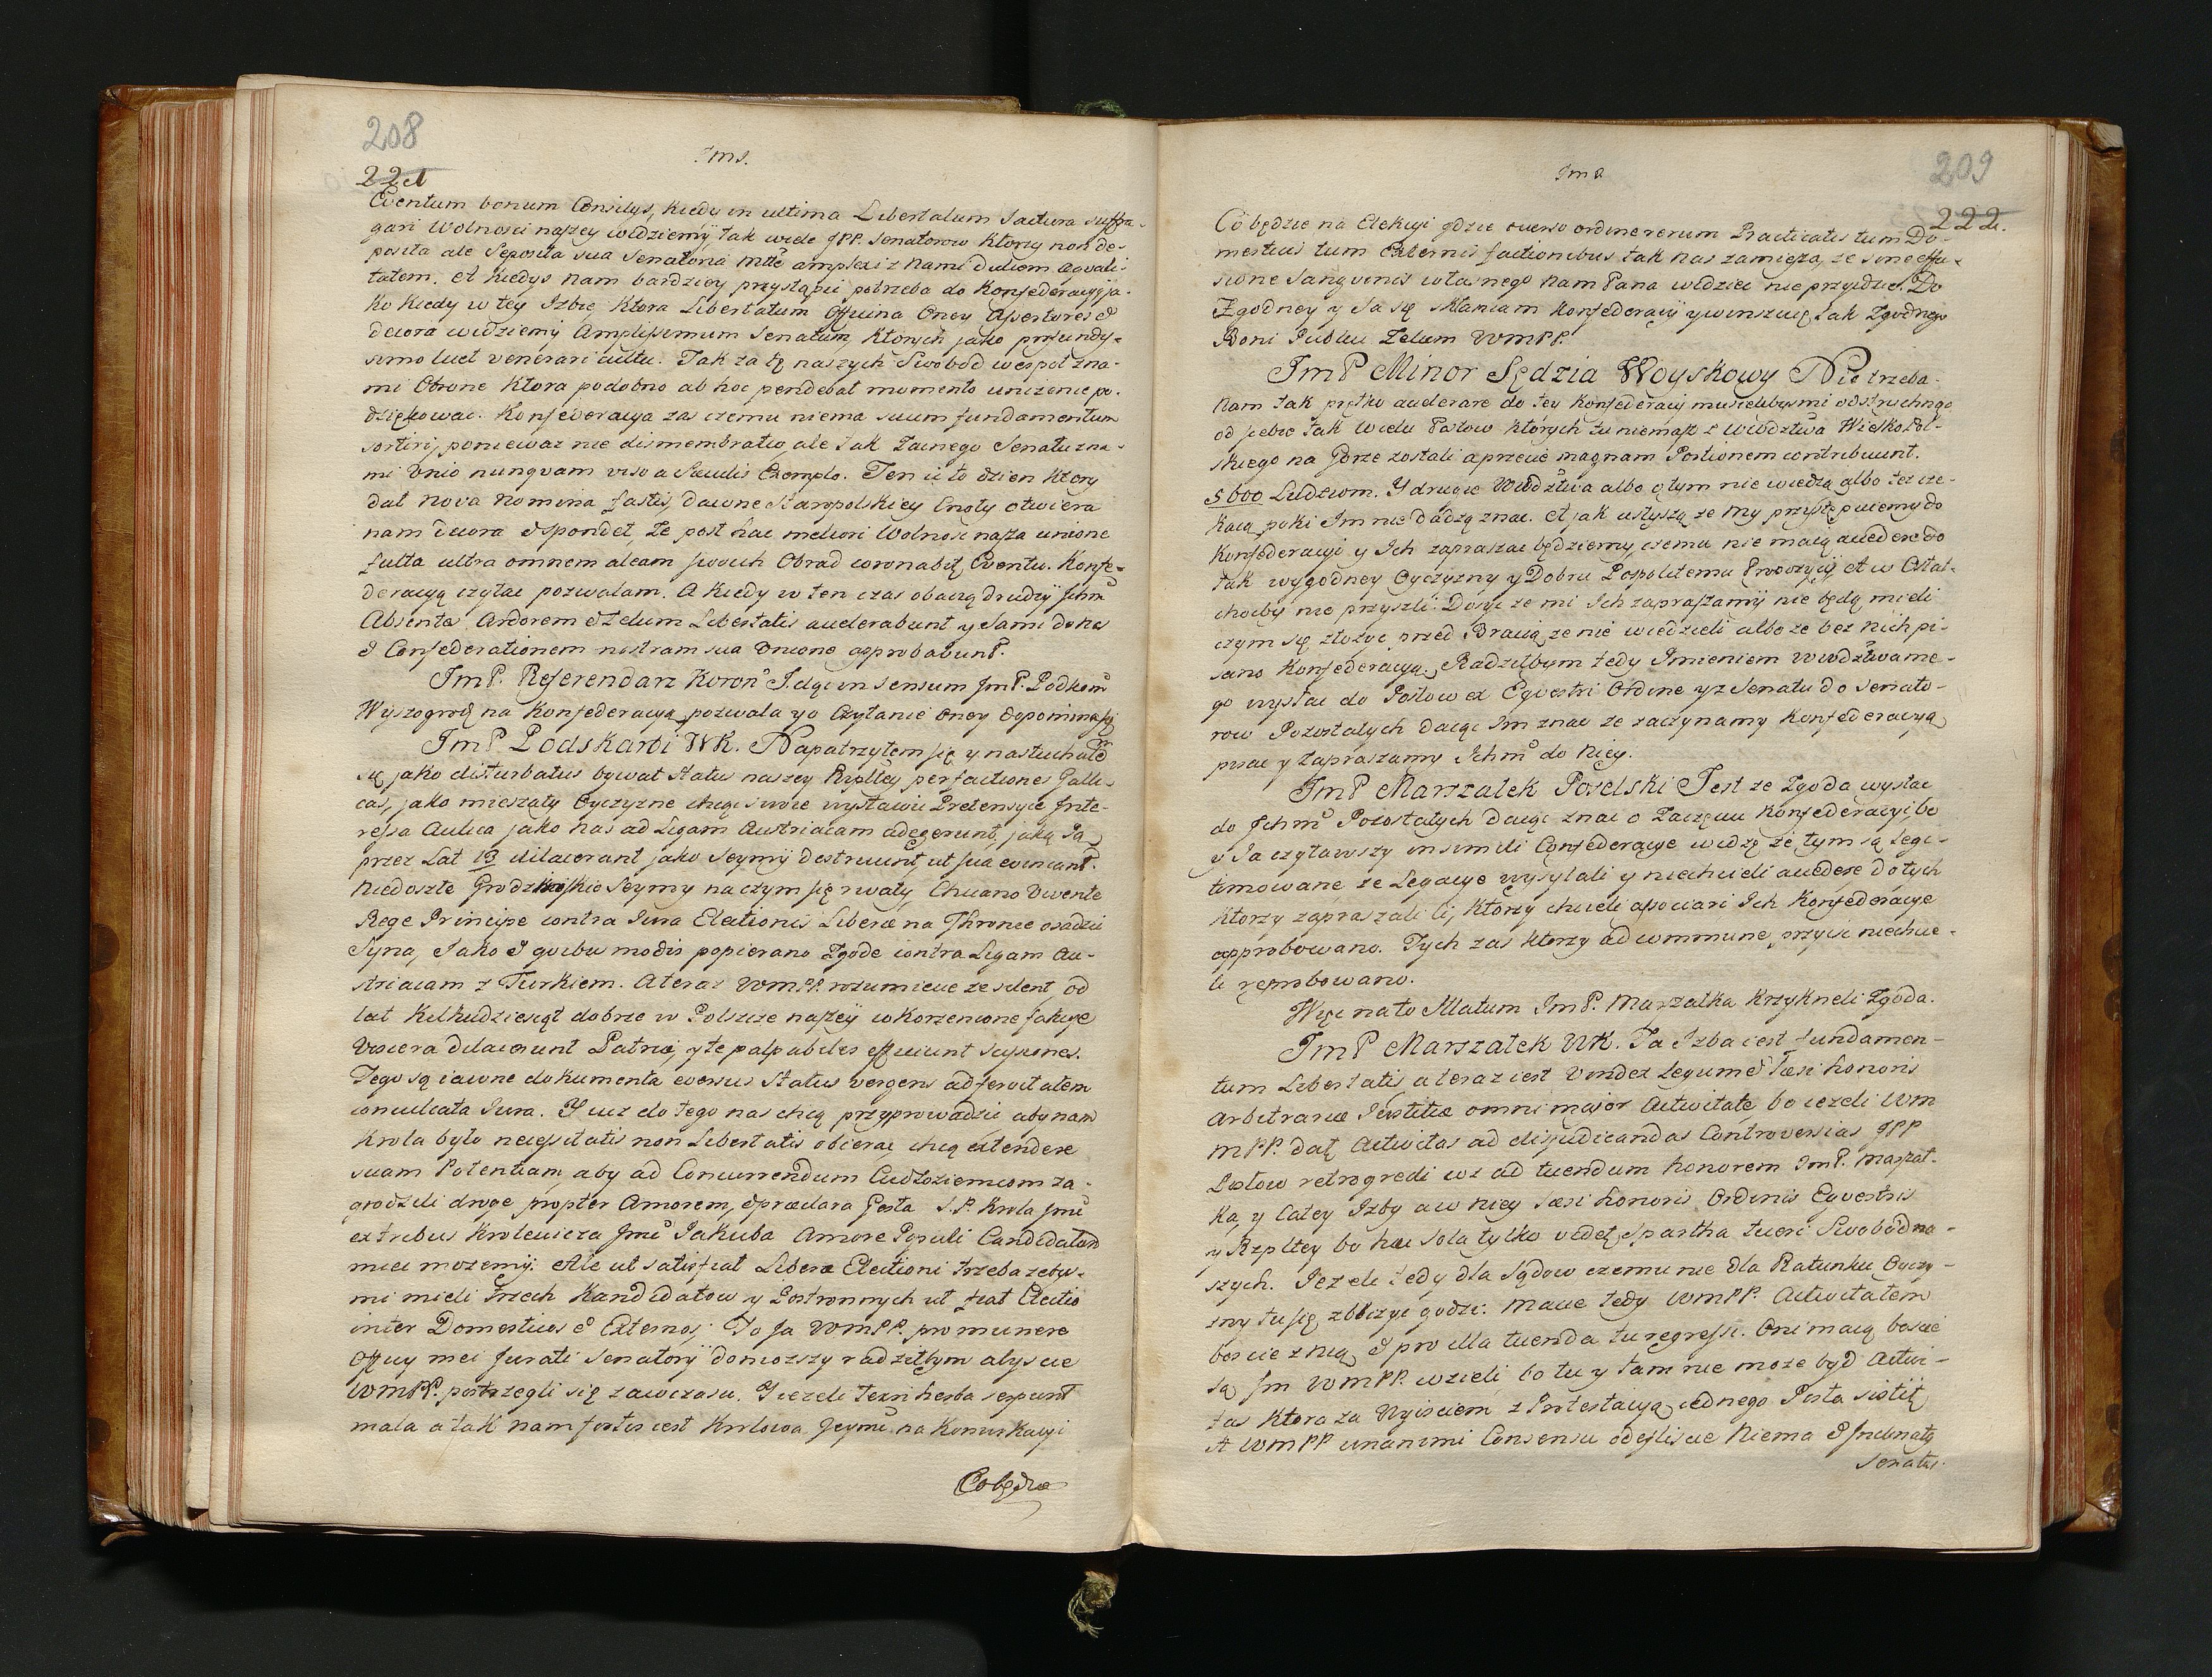 208
221
Eventum bonum Consilys, kiedy in ultima Libertatum Iactura suffra-
gari Wolnosci naszey widziemy tak wiele JPP. Senatorow ktorzy non de-
posita ale Seposita sua Senatoria Mtte amplexi z Nami dulcem aequali-
tatem. et kiedys nam bardziey przystąpic potrzeba do Konfederacyi ja-
ko kiedy w tey Izbie ktora Libertatum Officina Oney Assertores &
decora widziemy Amplissimum Senatum, ktorych jako profundys-
simo licet venerari cultu. Tak za tę naszych Swobod wespoł zna-
mi Obronę ktora podobno ab hoc pendebat momento unizenie po-
dziękowac. Konfederacya zas czemu niema suum fundamentum
sortiri, poniewaz nie dismembratio, ale tak Zacnego Senatu zna-
mi Unio nunquam viso a Saeculis Exemplo. Ten ci to dzien ktory
dał Nova Nomina fastis, dawne Staropolskiey Cnoty otwiera
nam decora & spondet, ze post hac meliori Wolnosc nasza unione
fulta ultra omnem aleam swoich Obrad coronabit Eventu. Konfe-
deracyą czytac pozwalam. A kiedy w ten czas obaczą drudzy Ichm
Absentes Ardorem & Zelum Libertatis accelerabunt y Sami do nas
& Confederationem nostram sua Unione approbabunt.
ImP. Referendarz Koron. Idąc in sensum ImP. Podkom
Wyszogrod. na Konfederacyą pozwala y o Czytanie oney dopomina się
ImP. Podskarbi WK. Napatrzyłem się y nasłuchałem
się jako disturbatus bywał status naszey Rzpltey per factiones Galli-
cas, jako mieszały Oyczyznę chcąc swoie wystawic Pretensye Inte-
ressa Aulica jako nas ad Ligam Austriacam adegerunt, jaką Ją
przez Lat 13 dilacerant jako Seymy destruunt, ut sua evincant.
Niedoszłe Grodzieńskie Seymy na czym się rwały, Chciano Vivente
Rege Principe contra Iura Electionis Liberae na Thronie osadzic
Syna, Jako & quibus modis popierano Zgodę contra Ligam Au-
striacam z Turkiem. A teraz WMPP. rozumiecie ze silent, od
lat kilkudziesiąt dobrze w Polszcze naszey wkorzenione fakcye
Viscera dilacerunt Patriae, y te palpabiles efficiunt scissiones.
Tego są iawne dokumenta eversus Status vergens ad ferocitatem
conculcata Iura. Y iuz do tego nas chcą przyprowadzic aby nam
Krola było necessitatis non Libertatis obierac, chcą extendere
suam Potentiam, aby ad Concurrendum Cudzoziemcom za-
grodzili drogę propter Amorem, & praeclara Gesta S.P. Krola Jmc
ex tribus Krolewicza Jmc Jakuba Amore Populi Candidatum
miec mozemy. Ale ut satisfiat Liberae Electioni trzeba zebys-
mi mieli trzech Kandidatow y Postronnych ut fiat Electio
inter Domesticos & Externos. To Ja WMPP. pro munere
Officy mei Jurati Senatory donoszszy radziłbym abyscie
WMPP. postrzegli się zawczasu. Y iezeli tezn herba serpunt
mala a tak nam fortis iest Krolowa Jeymc na Konwokacyi
Co będzie
Im2
209
222.
Co będzie na Elekcyi gdzie everso ordine rerum Practicatis tum Do-
mesticis tum Externis factionibus tak nas zamięszą, ze sine effu-
sione Sanguinis własnego nam Pana widziec nie przyidzie. Do
Zgodney y Ja się skłaniam Konfederacyi y winszuię tak Zgodnego
Boni Publici Zelum WMPP.
ImP Minor Sędzia Woyskowy Nie trzeba
nam tak prętko accelerare do tey Konfederacyi musielibysmi odstrychnąc
od siebie tak wielu Posłow ktorych tu niemasz z Wwodztwa Wielkopol-
skiego na Gorze zostali a przecie magnam Portionem contribuunt.
5600 Ludziom. Y drugie Wwdztwa albo o tym nie wiedzą albo tez cze-
kaią poki Im nie dadzą znac. A jak usłyszą ze my przystępuiemy do
Konfederacyi y Ich zapraszac będziemy, czemu nie maią accedere do
tak wygodney Oyczyzny y Dobru Pospolitemu Prowizyi, A w Ostat-
chocby nie przyszli. Dosyc ze mi Ich zapraszamy nie będą mieli
czym się złozyc przed Bracią ze nie wiedzieli albo ze bez Nich pi-
sano Konfederacyą. Radziłbym tedy Imieniem Wwdztwa me-
go wysłac do Posłow ex Equestri Ordine y z Senatu do Senato-
row Pozostałych daiąc Im znac ze zaczynamy Konfederacyą
pisac y Zapraszamy Ichm do Niey.
ImP Marszałek Poselski Jest ze Zgoda wysłac
do Ichm Pozostałych daiąc znac o Zaczęciu Konfederacyi, bo
y Ja czytawszy in simili Confederacye widzę ze tym są Legi-
timowane ze Legacye wysyłali y niechcieli accedere do tych
ktorzy zapraszali li, ktorzy chcieli associari Ich Konfederacye
approbowano. Tych zas ktorzy ad commune przyisc niechcie-
li reprobowano.
Więc na to Illatum ImP. Marszałka krzykneli Zgoda.
ImP Marszałek WK. Ta Izba iest fundamen-
tum Libertatis a teraz iest Vindex Legum & Laesi honoris
Arbitrariae Iustitiae omni major Activitate bo iezeli WM
MPP. dat Activitas ad disjudicandas Controversias JPP
Posłow retrogredi coz ad tuendum honorem ImP. Marszał-
ka, y Całey Izby a w niey Laesi honoris Ordinis Equestris
y Rzpltey bo haec sola tylko videt Spartha tueri Swobod na-
szych. Jezeli tedy dla Sądow czemu nie dla Ratunku Oyczy-
zny tu się zblizyc godzi. Macie tedy WMPP. Activitatem
boscie z nią & pro illa tuenda tu regressi. Oni maią boscie
Ją Im WMPP. wzieli bo tu y tam nie moze byd Activi-
tas ktora za Wyisciem z Protestacyą iednego Posła sistit
A WMPP unanimi Consensu odeszliscie Niema &
Senatus